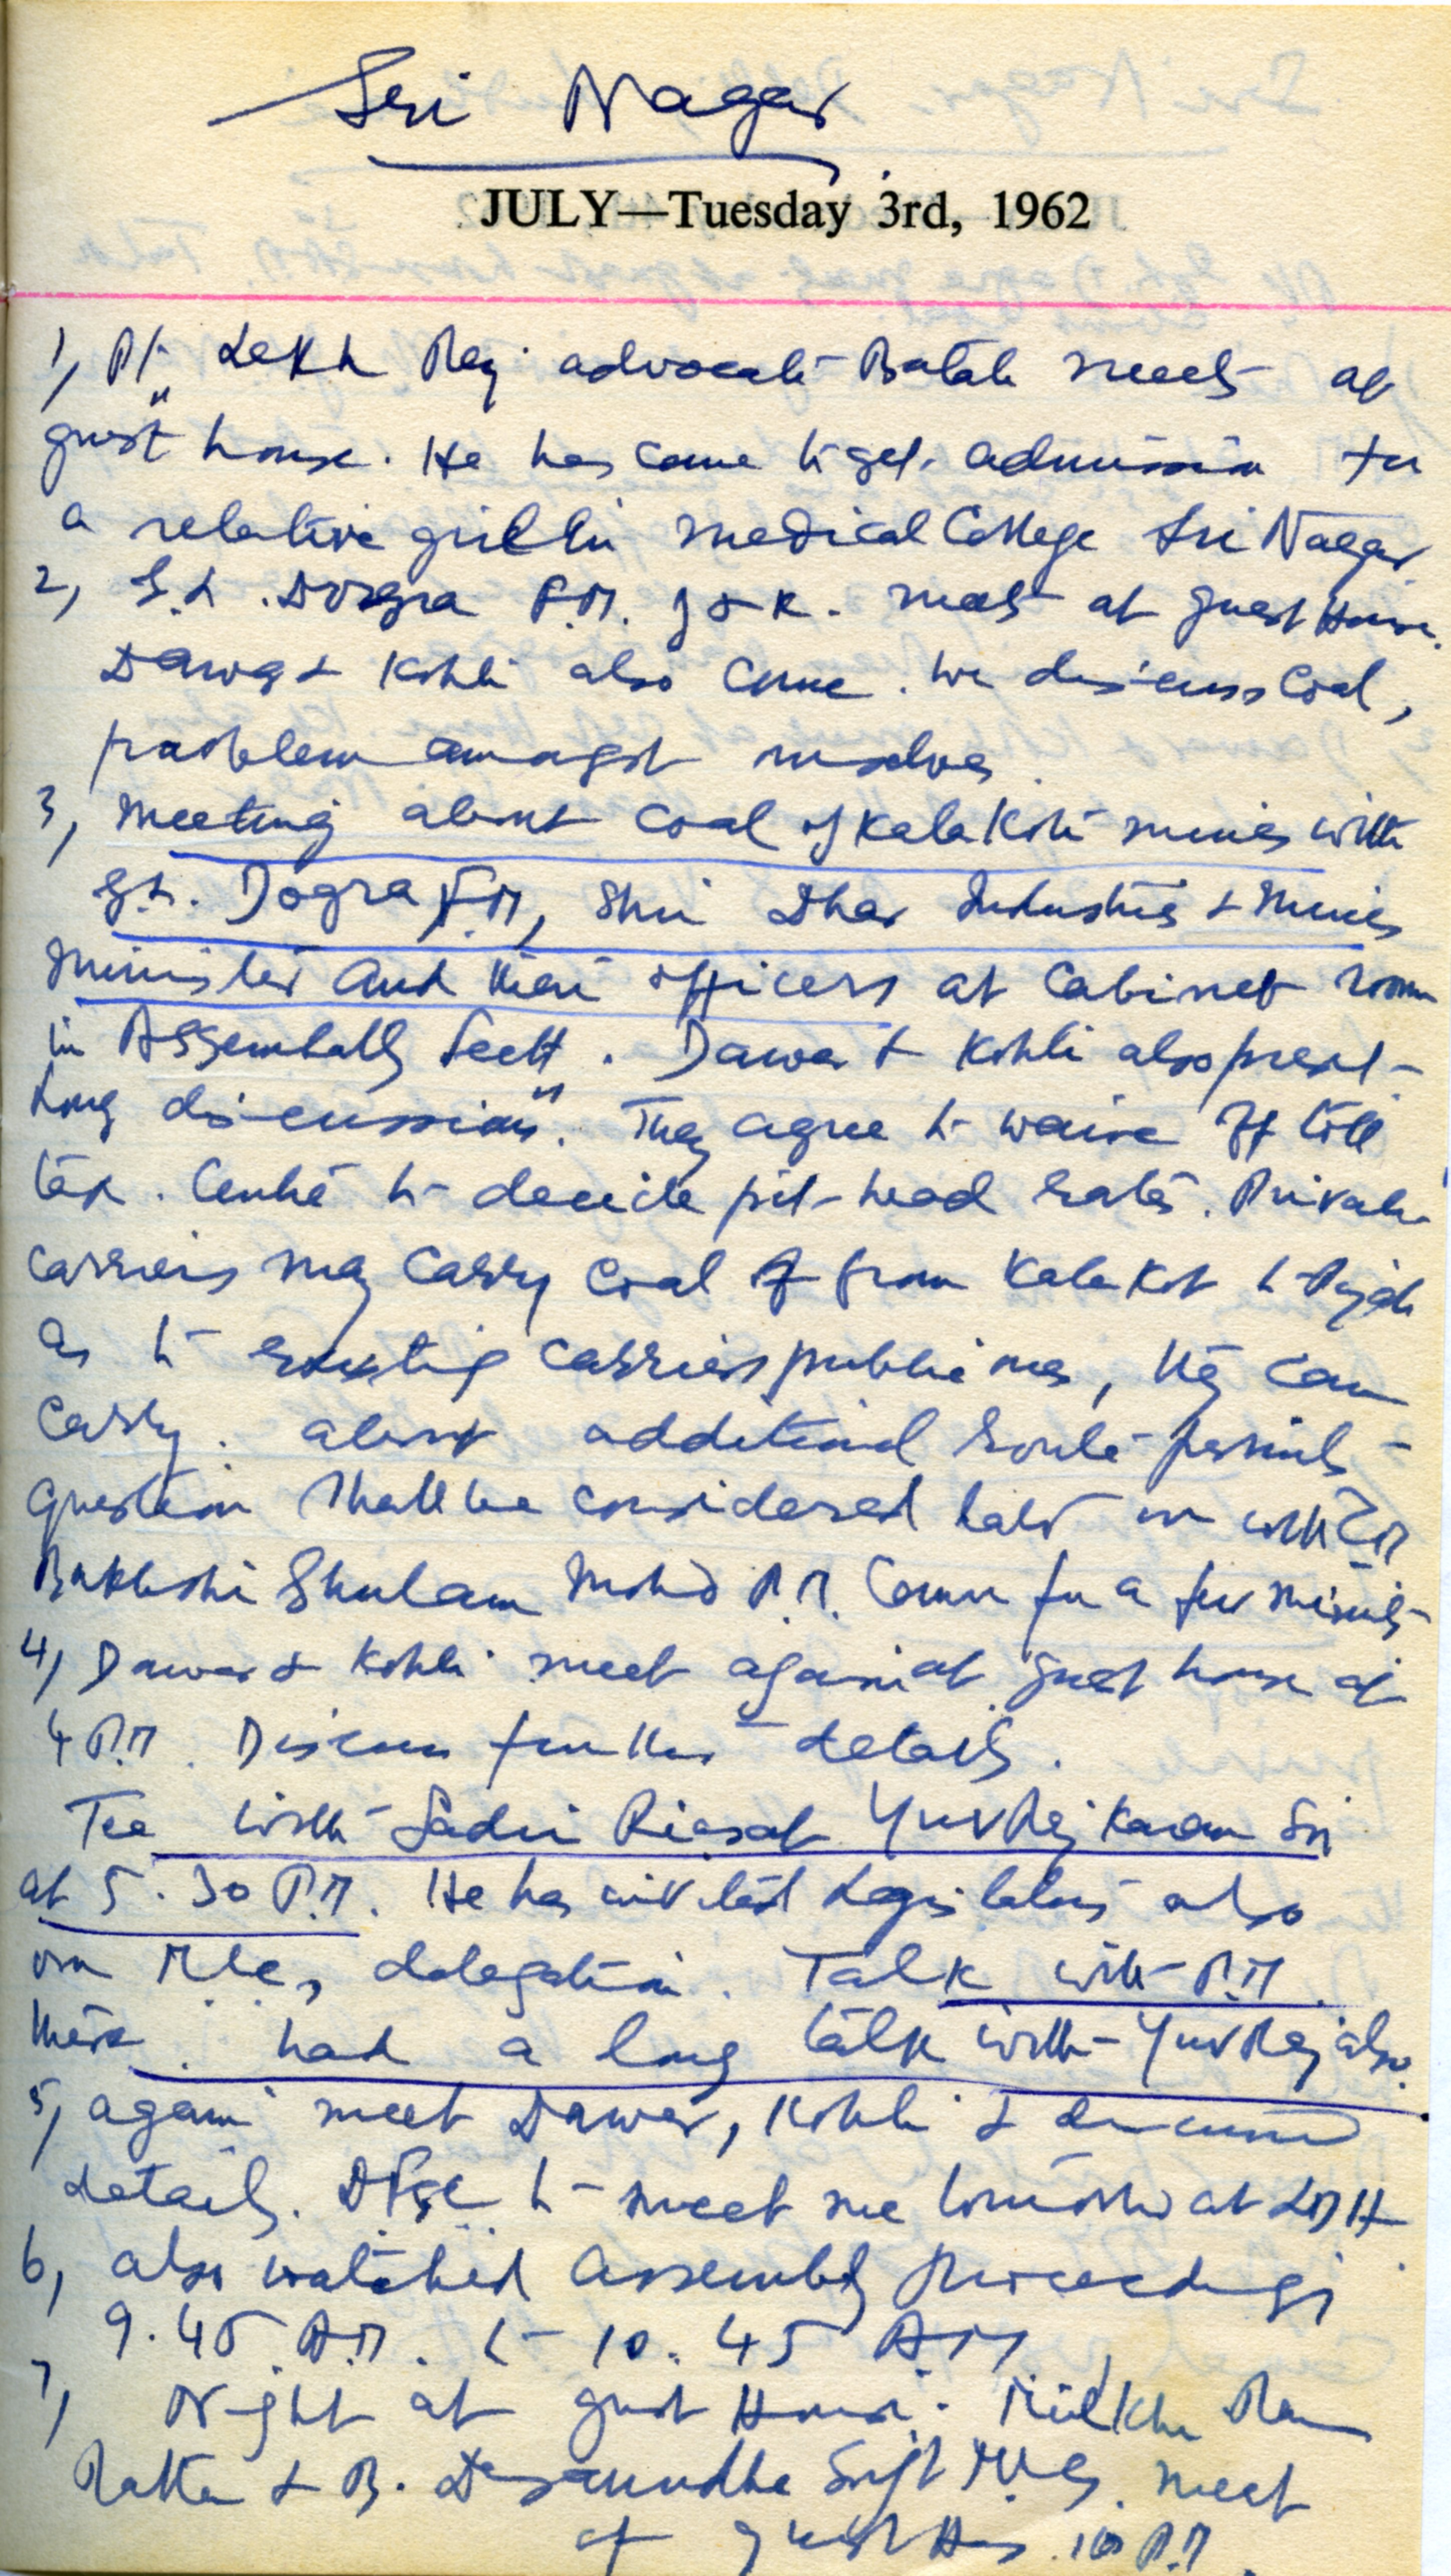 Sri Nagar
JULY—Tuesday 3rd, 1962
1, Pt. Lekh Raj advocate Batala meets at
guest house. He has come to get admission for
a relative girl in medical College Sri Nagar
2, G.L. Dogra F.M. J & K. meets at guest House.
Dawar & Kohli also come. We discuss Coal,
problem amongst ourselves.
3, Meeting about Coal of KalaKote mines with
G.L. Dogra F.M, Shri Dhar Industries & Mines
Minister and their officers at Cabinet room
in Assembally Sectt. Dawar & Kohli also present-
Long discussions. They agree to waive off toll
tax. Centre to decide pit-head rates. Private
carriers may carry Coal from KalaKot to
as to existing carriers public ones, they can
carry. about additional route-permits-
question shall be considered later on with
Bakhshi Ghulam Mohd P.M. Comes for a few minutes-
4, Dawar & Kohli meet again at guest house at
4 P.M. Discuss further details.
Tea with Sadri Riasat YuvRaj Karan Sri
at 5.30 P.M. He has invited Legislators also
our MLCs, delegation. Talk with P.M.
there. had a long talk with YuvRaj also.
5, again meet Dawar, Kohli & discuss
details. to meet me tomorrow at
6, also watched assembly Proceedings
9.45 A.M. to 10.45 A.M
7, Night at guest House. Milkhi Ram
Ratta & B. Dasaundha Singh meet
at guest House 10 P.M.